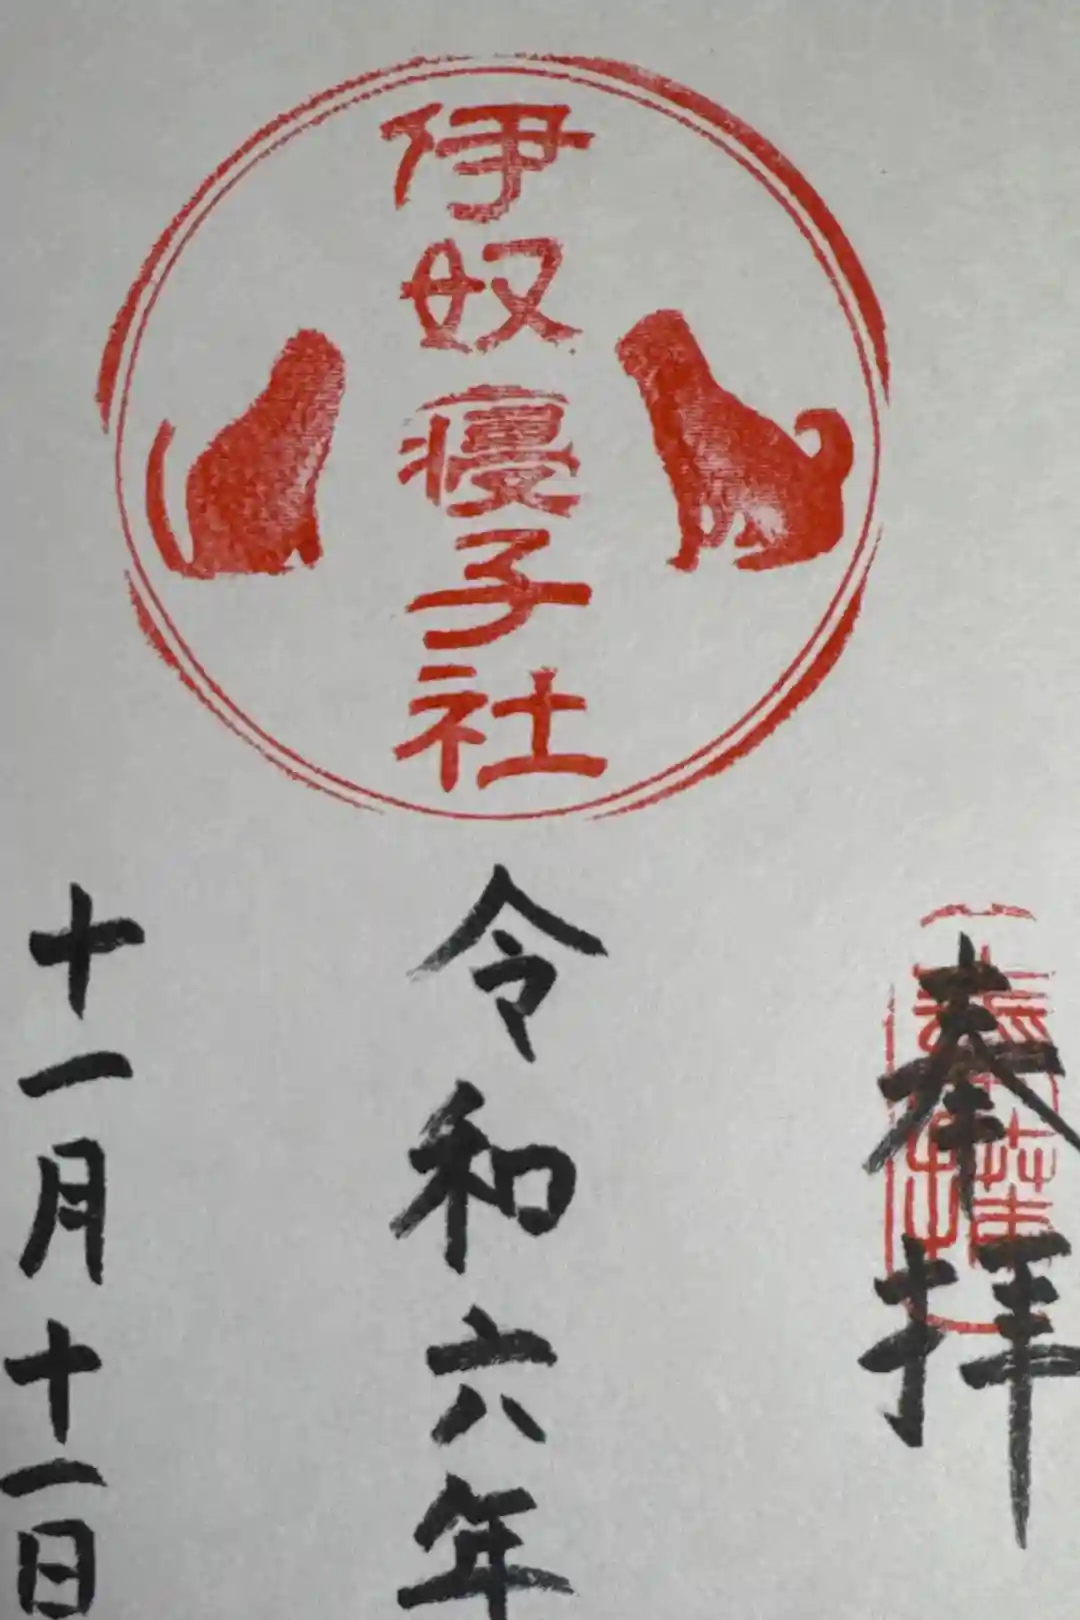 伊奴寝子社
奉拝
令和六年
十一月十一日